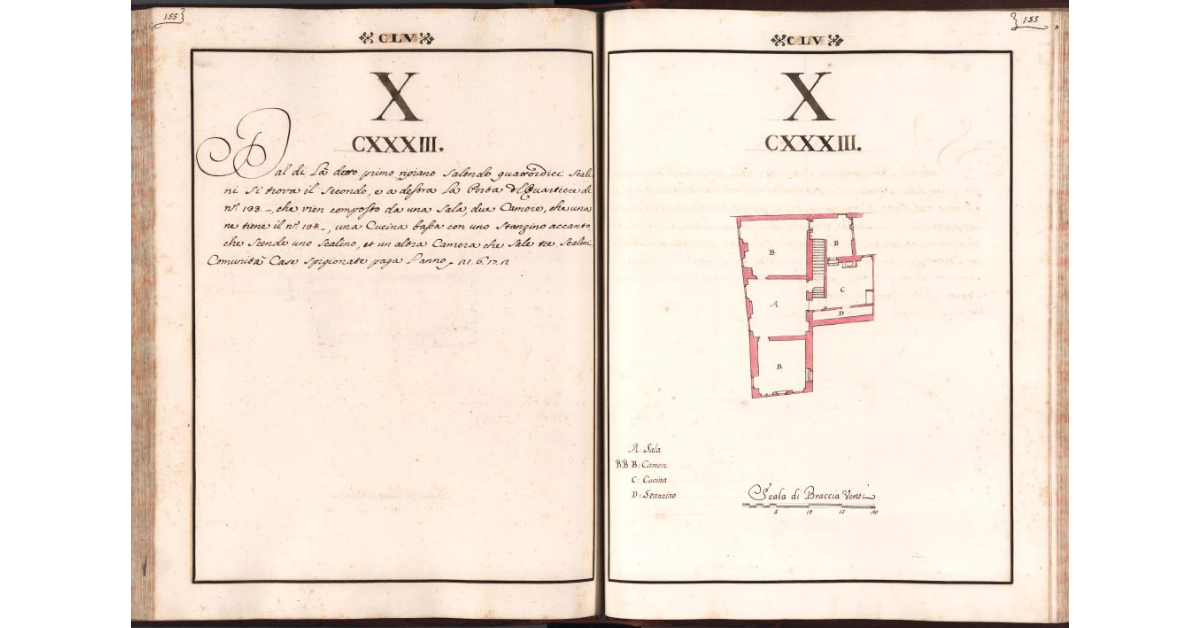 155
CLV
X
CXXXIII.
Dal di Là detto primo ripiano Salendo quattordici Scali
ni Si trova il Secondo, e a destra La Porta del Quartiere di
n.º 133 -, che vien composto da una Sala, due Camere, che una
ne tiene il n.º 134 -, una Cucina bassa con uno Stanzino accanto,
che Scende uno Scalino, et un altra Camera che Sale tre Scalini
Comunità Case Spigionate paga L'anno
155
CLV
X
CXXXIII.
B
B
A
C
D
B
A: Sala
BB B: Camere
C: Cucina
D: Stanzino
Scala di Braccia Venti
5 10 15 20